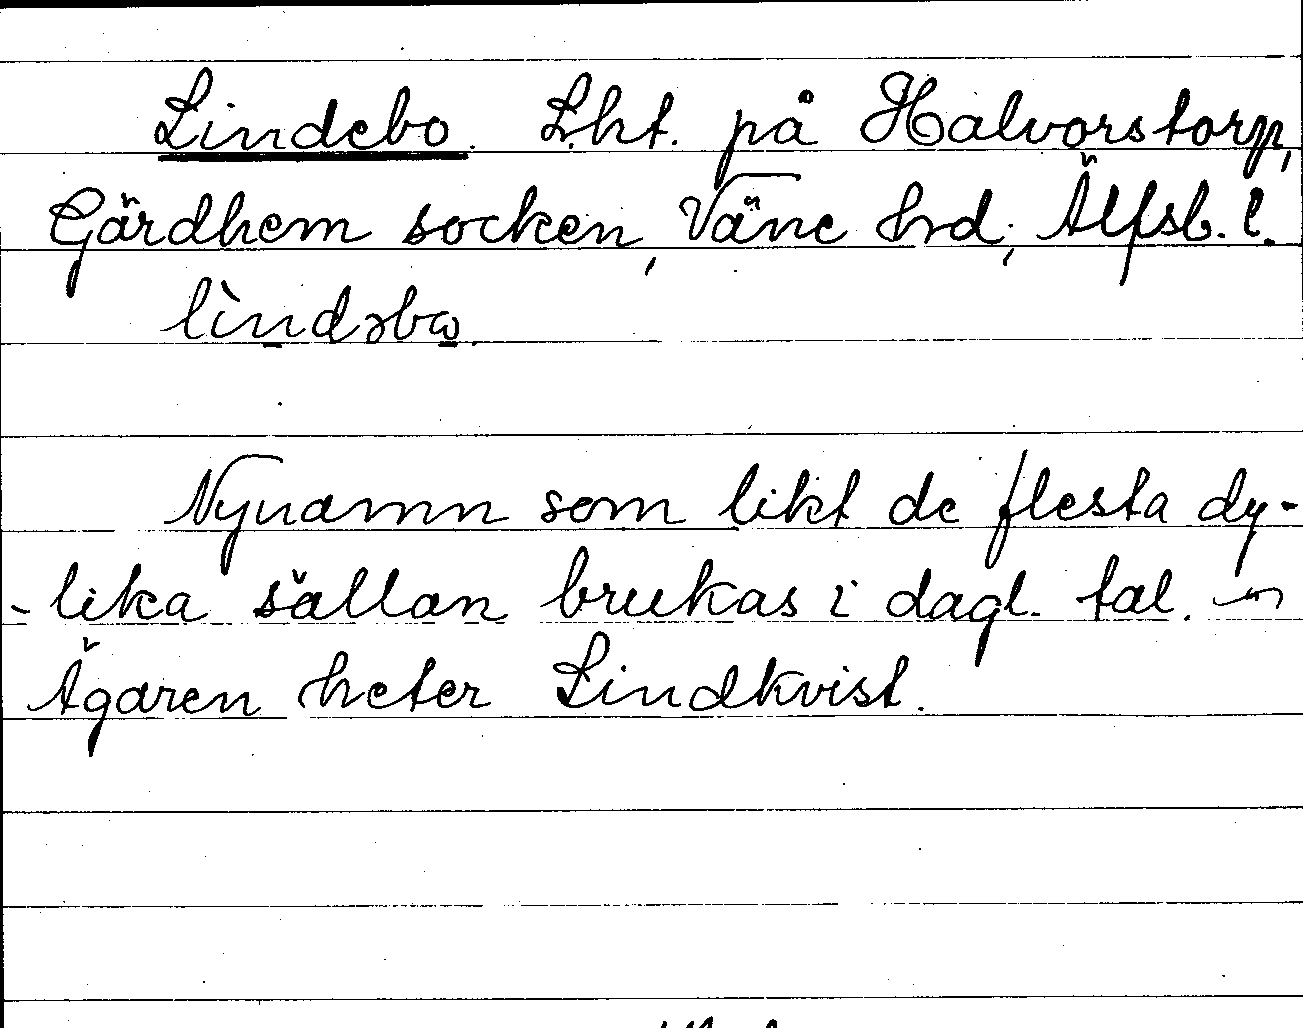 Lindebo. Lht. på Halvorstorp,
Gärdhem socken, Väne hrd; Älfsb. l.
lìndəbω.
Nynamn som likt de flesta dy-
-lika sällan brukas i dagl. tal. ~
Ägaren heter Lindkvist.